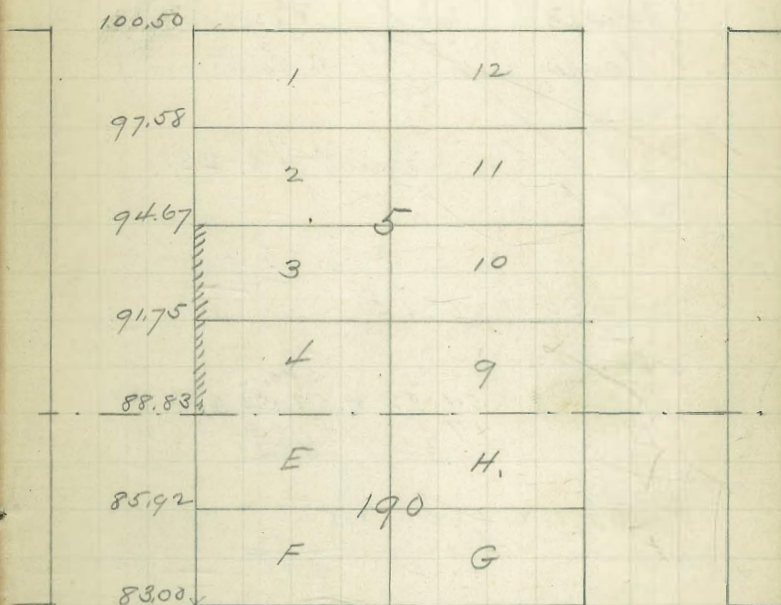 100.50
1 12
97.58
2 11
94.67 5
3 10
91.75
4 9
88.83
E H.
85.92 190
F G
83.00